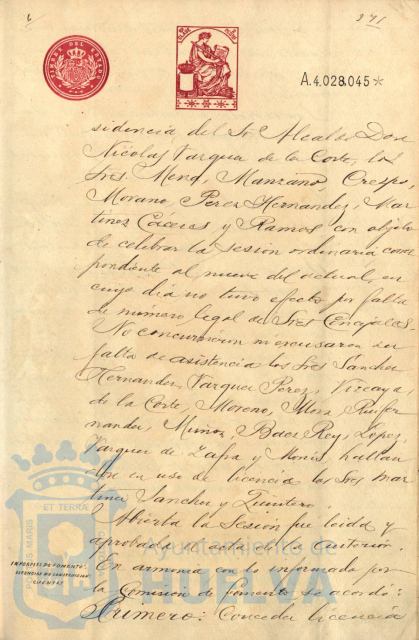 271
TIMBRE DEL ESTADO
A.4.028.045*
sidencia del Sr Alcalde Don
Nicolas Vazquez de la Corte, los
Sres Mena, Manzano, Crespo,
Morano, Perez Hernandez, Mar
tinez Cáceres, y Ramos con objeto
de celebrar la sesion ordinaria corres
pondiente al nueve del actual, en
cuyo dia no tuvo efecto por falta
de número legal de Sres Concejales.
No concurrieron ni escusaron su
falta de asistencia los Sres Sanchez
Hernandez, Vazquez Perez, Vizcaya,
de la Corte, Moreno, Mora, Ruifer
nandez, Muñoz, Baez Rey, Lopez,
Vazquez de Zafra y Monis, hallan
dose en uso de licencia los Sres Mar
tinez Sanchez y Quintero.
Abierta la Sesión fue leida y
aprobada el acta de la anterior.
INFORMES DE FOMENTO.
LICENCIAS DE CONSTRUCCION
CUENTAS
En armonia con lo informado por
la Comision de fomento se acordó:
Primero: Conceder licencia
PORTUS MARIS ET TERRÆ
Ayuntamiento de
HUELVA